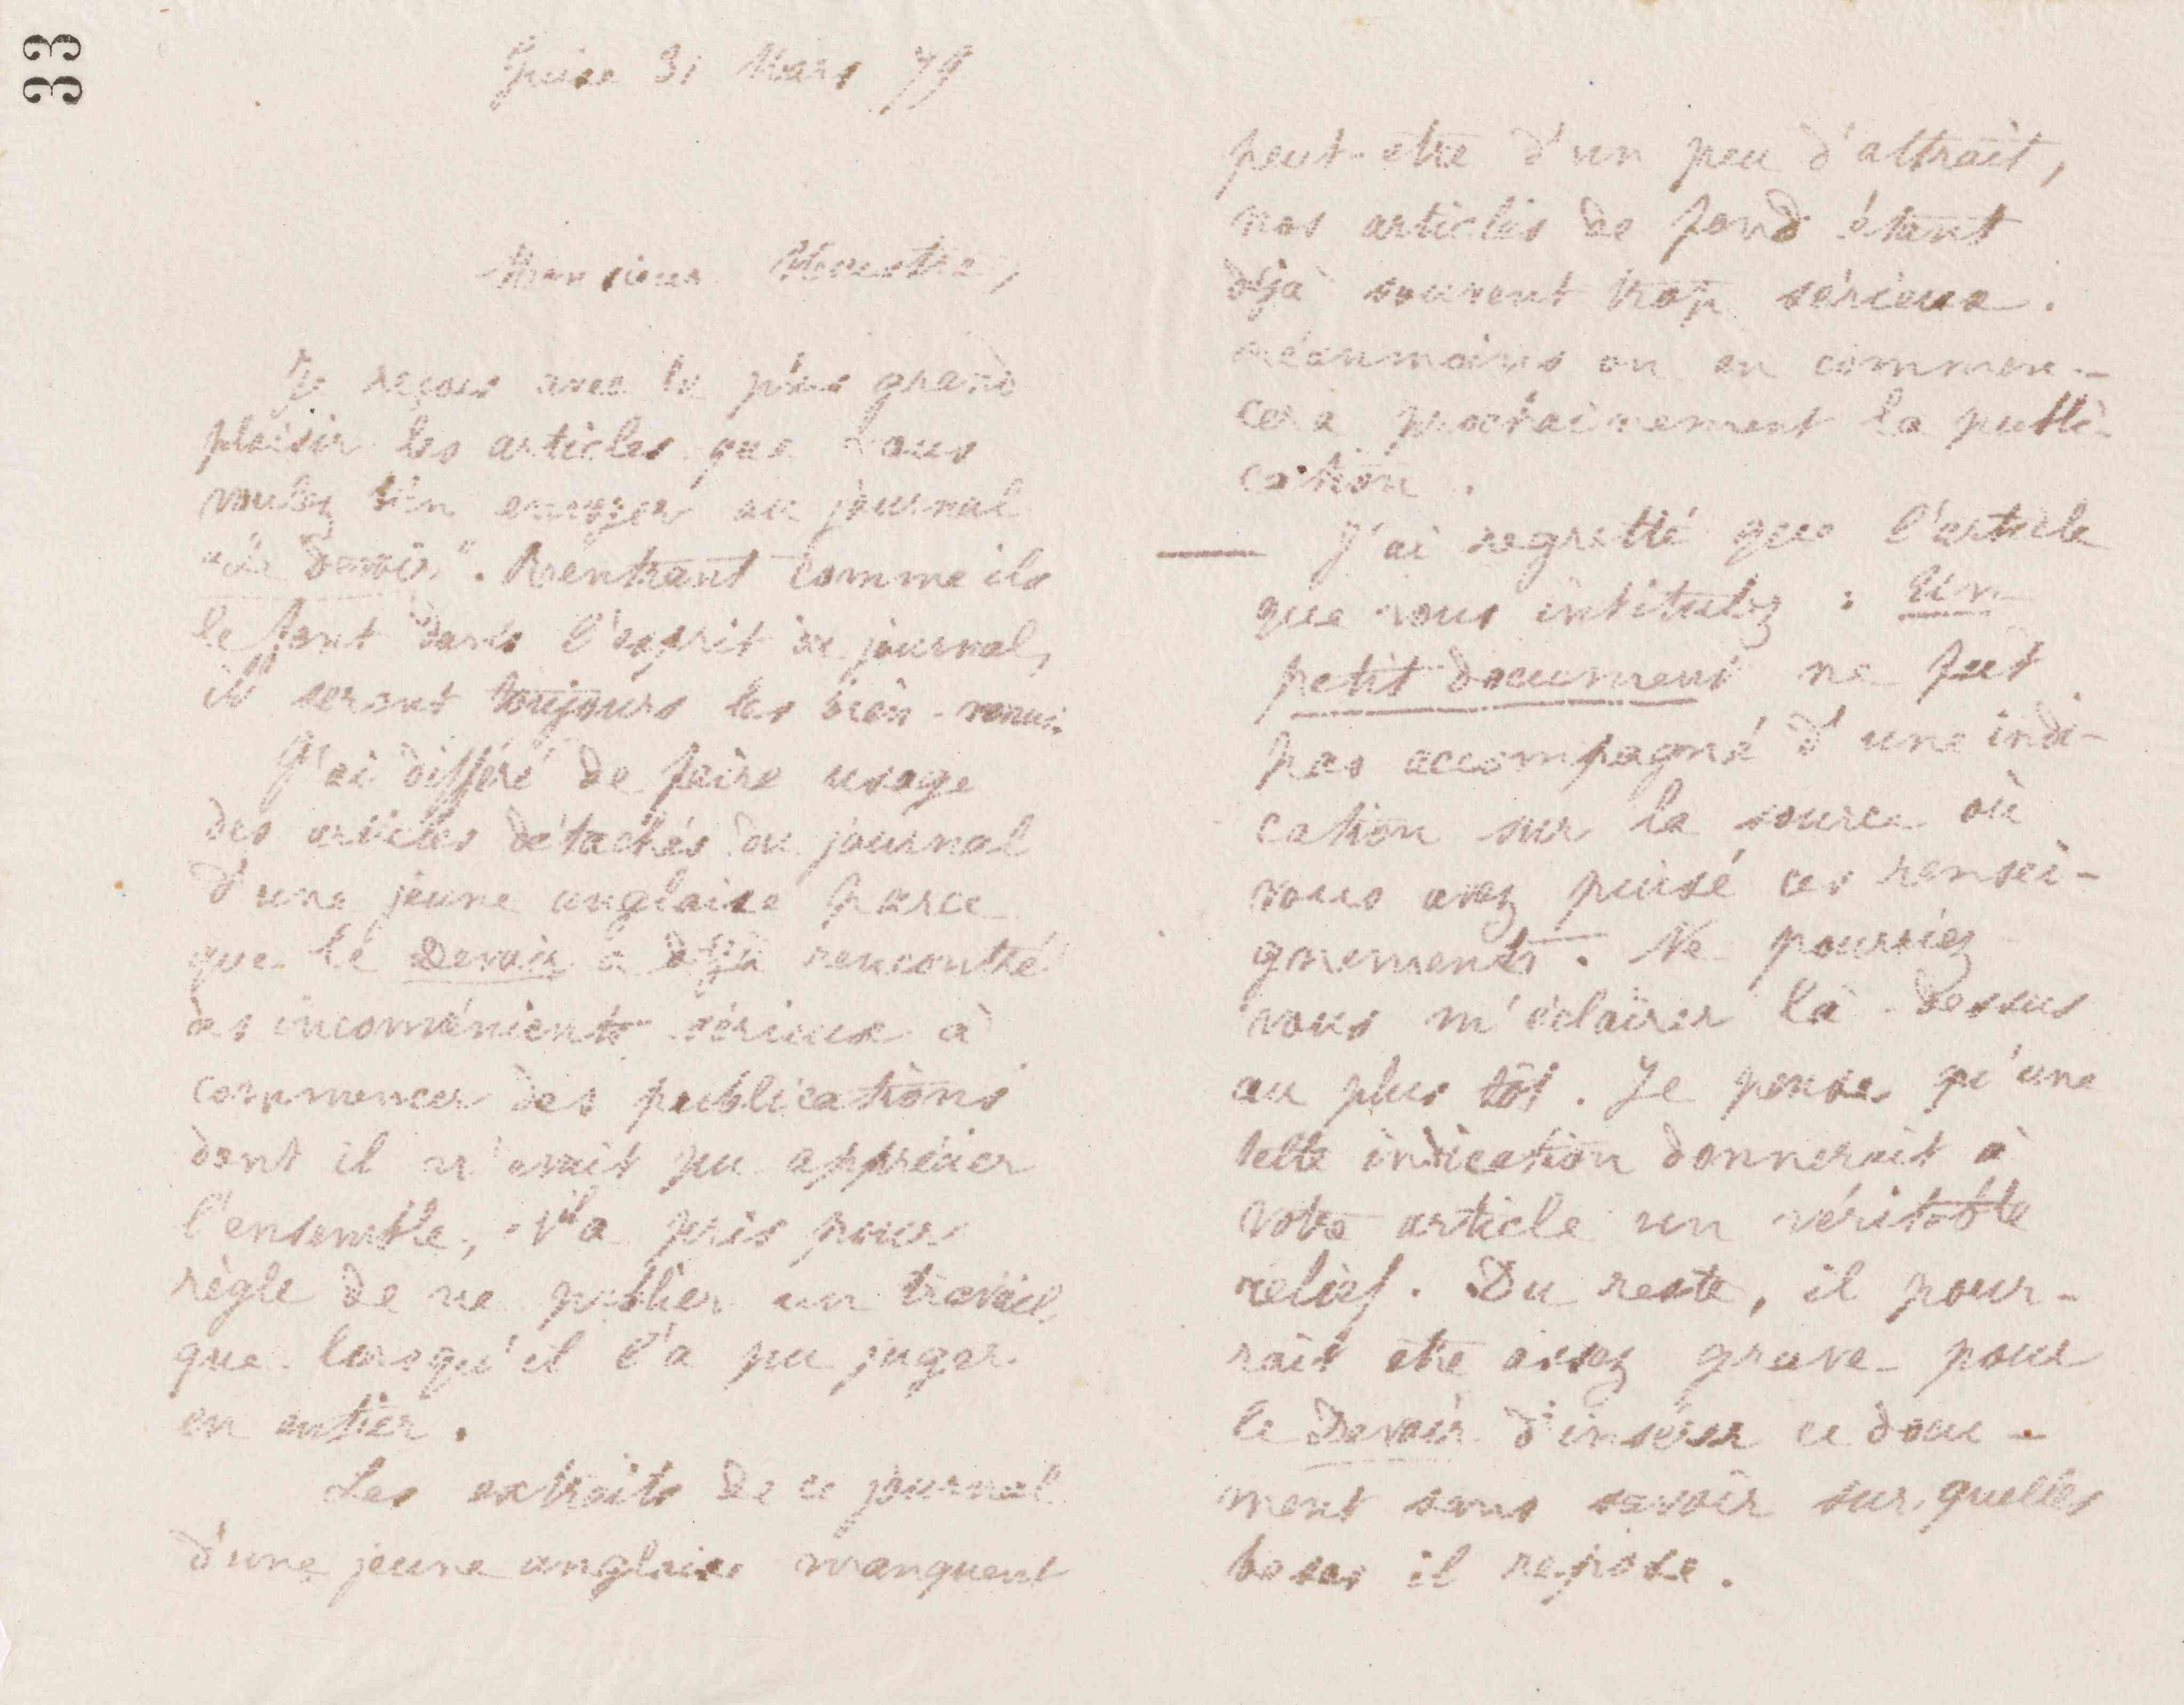 33
Guise 31 Mars 79
Monsieur
Je reçois avec le plus grand
plaisir les articles que vous
voulez bien envoyer au journal
"Le Devoir". Rentrant comme ils
le font dans l'esprit du journal,
ils seront toujours les bien-venus.
J'ai différé de faire usage
des articles détachés du journal
d'une jeune anglaise parce
que le Devoir a déjà rencontré
des inconvénients sérieux à
commencer des publications
dont il n'avait pu apprécier
l'ensemble, il a pris pour
règle de ne publier un travail
que lorsqu'il l'a pu juger
en entier.
Les extraits de ce journal
d'une jeune anglaise manquent
peut-être d'un peu d'attrait,
nos articles de fond étant
déjà souvent trop sérieux.
néanmoins on en commen-
cera prochainement la publi-
cation.
— J'ai regretté que l'article
que vous intitulez : Un
petit document ne fut
pas accompagné d'une indi-
cation sur la source où
vous avez puisé ces rensei-
gnements. Ne pourriez
vous m'éclairer là-dessus
au plus tôt. Je pense qu'une
telle indication donnerait à
votre article un véritable
relief. Du reste, il pour-
rait être assez grave pour
le Devoir d'insérer ce docu-
ment sans savoir sur quelles
bases il repose.